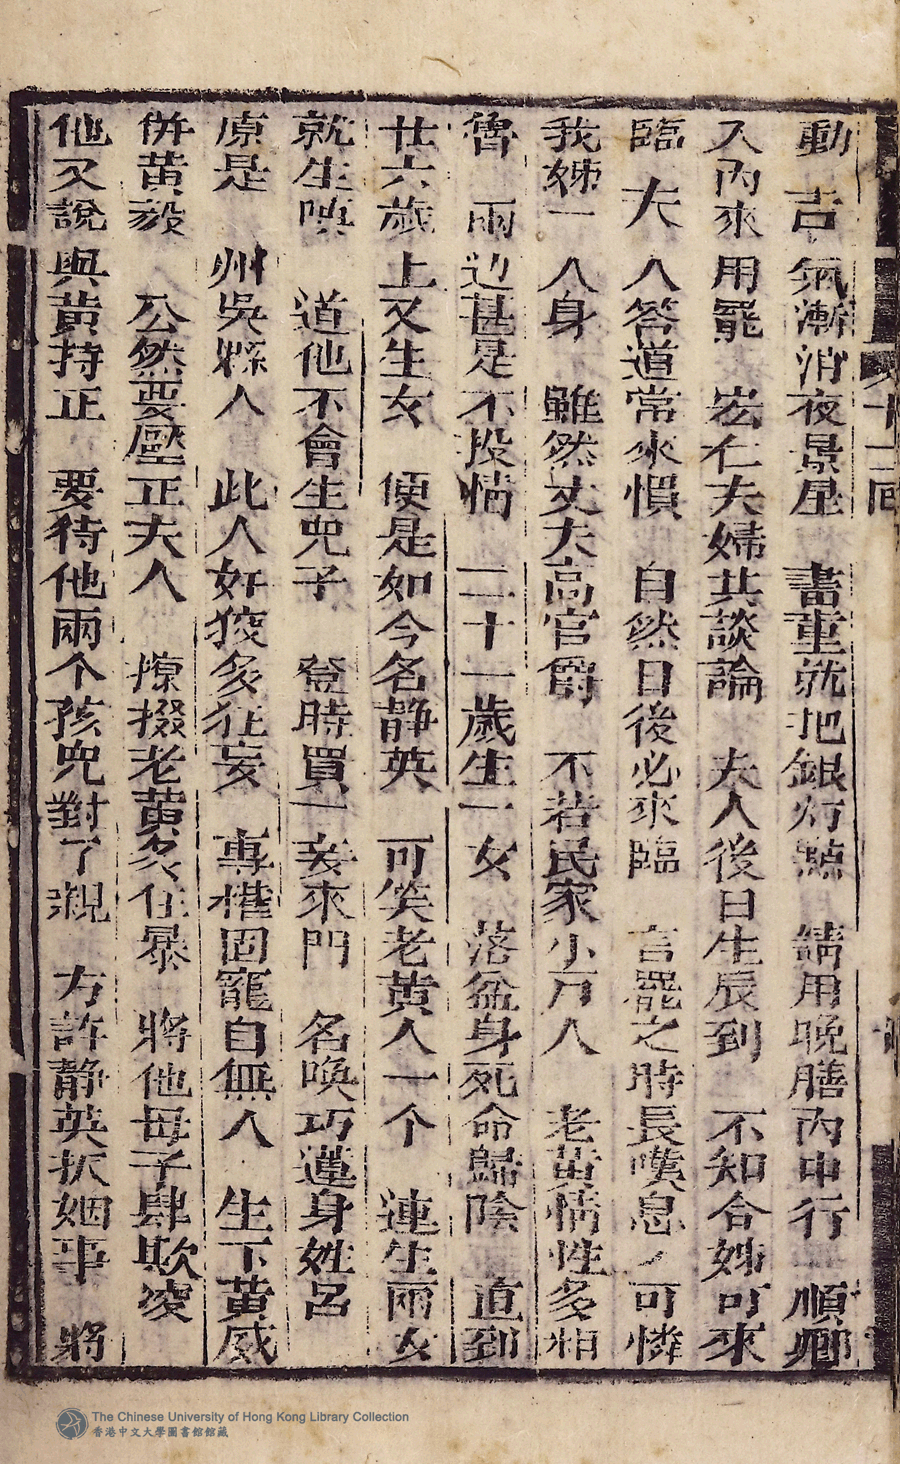 十二回
動 吉氣漸消夜景星 畫童就把銀灯點 請用晚膳內中行 順卿
入內來用罷 宏仁夫婦共談論 夫人後日生辰到 不知合姊可來
臨 夫人答道常來慣 自然日後必來臨 言罷之時長嘆息 可憐
我姊一人身 雖然丈夫高官爵 不若民家小戶人 老黃情性多粗
魯 兩边甚是不投情 二十一歲生一女 落盆身死命歸陰 直到
廿六歲上又生女 便是如今名静英 可笑老黃人一个 連生兩女
就生嗔 道他不會生兒子 登時買一妾來門 名喚巧蓮身姓呂
原是 州吳縣人 此人奸狡多狂妄 專權固寵自無人 生下黃威
併黃毅 公然要壓正夫人 撩掇老黃多狂暴 將他母子肆欺凌
他又說與黃持正 要待他兩个孩兒對了親 方許静英扳姻事 將
The Chinese University of Hong Kong Library Collection
香港中文大學圖書館館藏